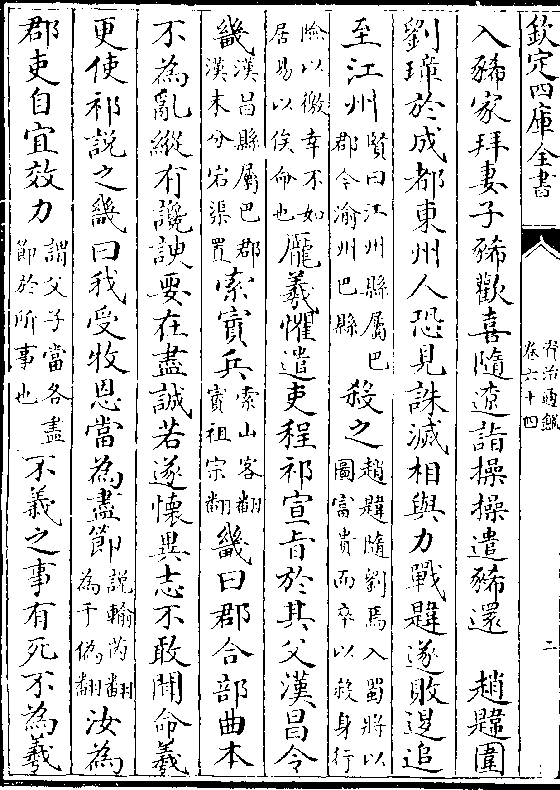 欽定四庫全書
資治通鑑
卷六十四
二
入豨家拜妻子豨歡喜隨遼詣操操遣豨還　趙韙圍
劉璋於成都東州人恐見誅滅相與力戰韙遂敗退追
至江州賢曰江州縣屬巴郡今渝州巴縣殺之趙韙隨劉焉入蜀將以圖富貴而卒以殺身行
險以徼幸不如居易以俟命也龎羲懼遣吏程祁宣旨於其父漢昌令
畿漢昌縣屬巴郡漢末分宕渠置索賨兵索山客翻賨祖宗翻畿曰郡合部曲本
不為亂縱有讒諛要在盡誠若遂懷異志不敢聞命羲
更使祁説之畿曰我受牧恩當為盡節説輸芮翻為于偽翻汝為
郡吏自宜效力謂父子當各盡節於所事也不義之事有死不為羲